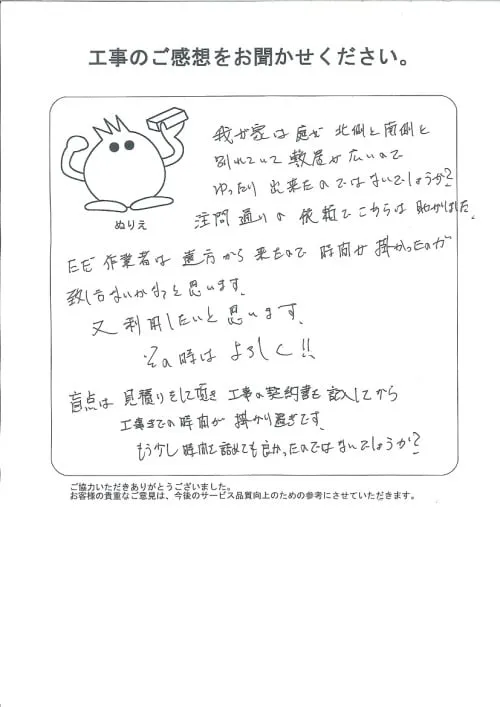 工事のご感想をお聞かせください。
我が家は庭が北側と南側と
別れていて敷居が広いので
ゆったり出来たのではないでしょうか?
注問通りの依頼でこちらは助かりました。
ぬりえ
ただ作業者は遠方から来たので時間が掛かったのが
致し方ないかなっと思います。
又利用したいと思います。
その時はよろしく!!
盲点は見積りをして頂き工事の契約書を記入してから
工事までの時間が掛かり過ぎです。
もう少し時間を詰めても良かったのではないでしょうか?
ご協力いただきありがとうございました。
お客様の貴重なご意見は、今後のサービス品質向上のための参考にさせていただきます。